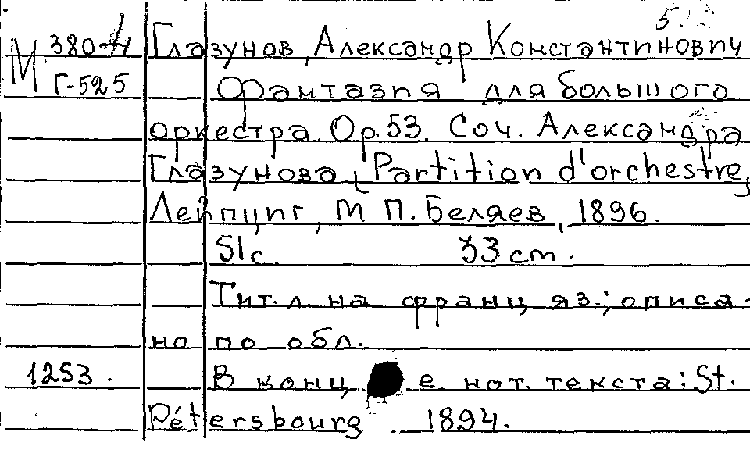 М 380-4 Глазунов, Александр Константинович
Г-525 Фантазия для большого
оркестра. Op.53. Соч. Александра
Глазунова, Partition d'orchestre,
Лейпциг, М. П. Беляев, 1896.
51с. 33 cm.
Тит. л. на франц. яз.; описа-
но по обл.
1253. В конце нот. текста: St.
Pétersbourg 1894.